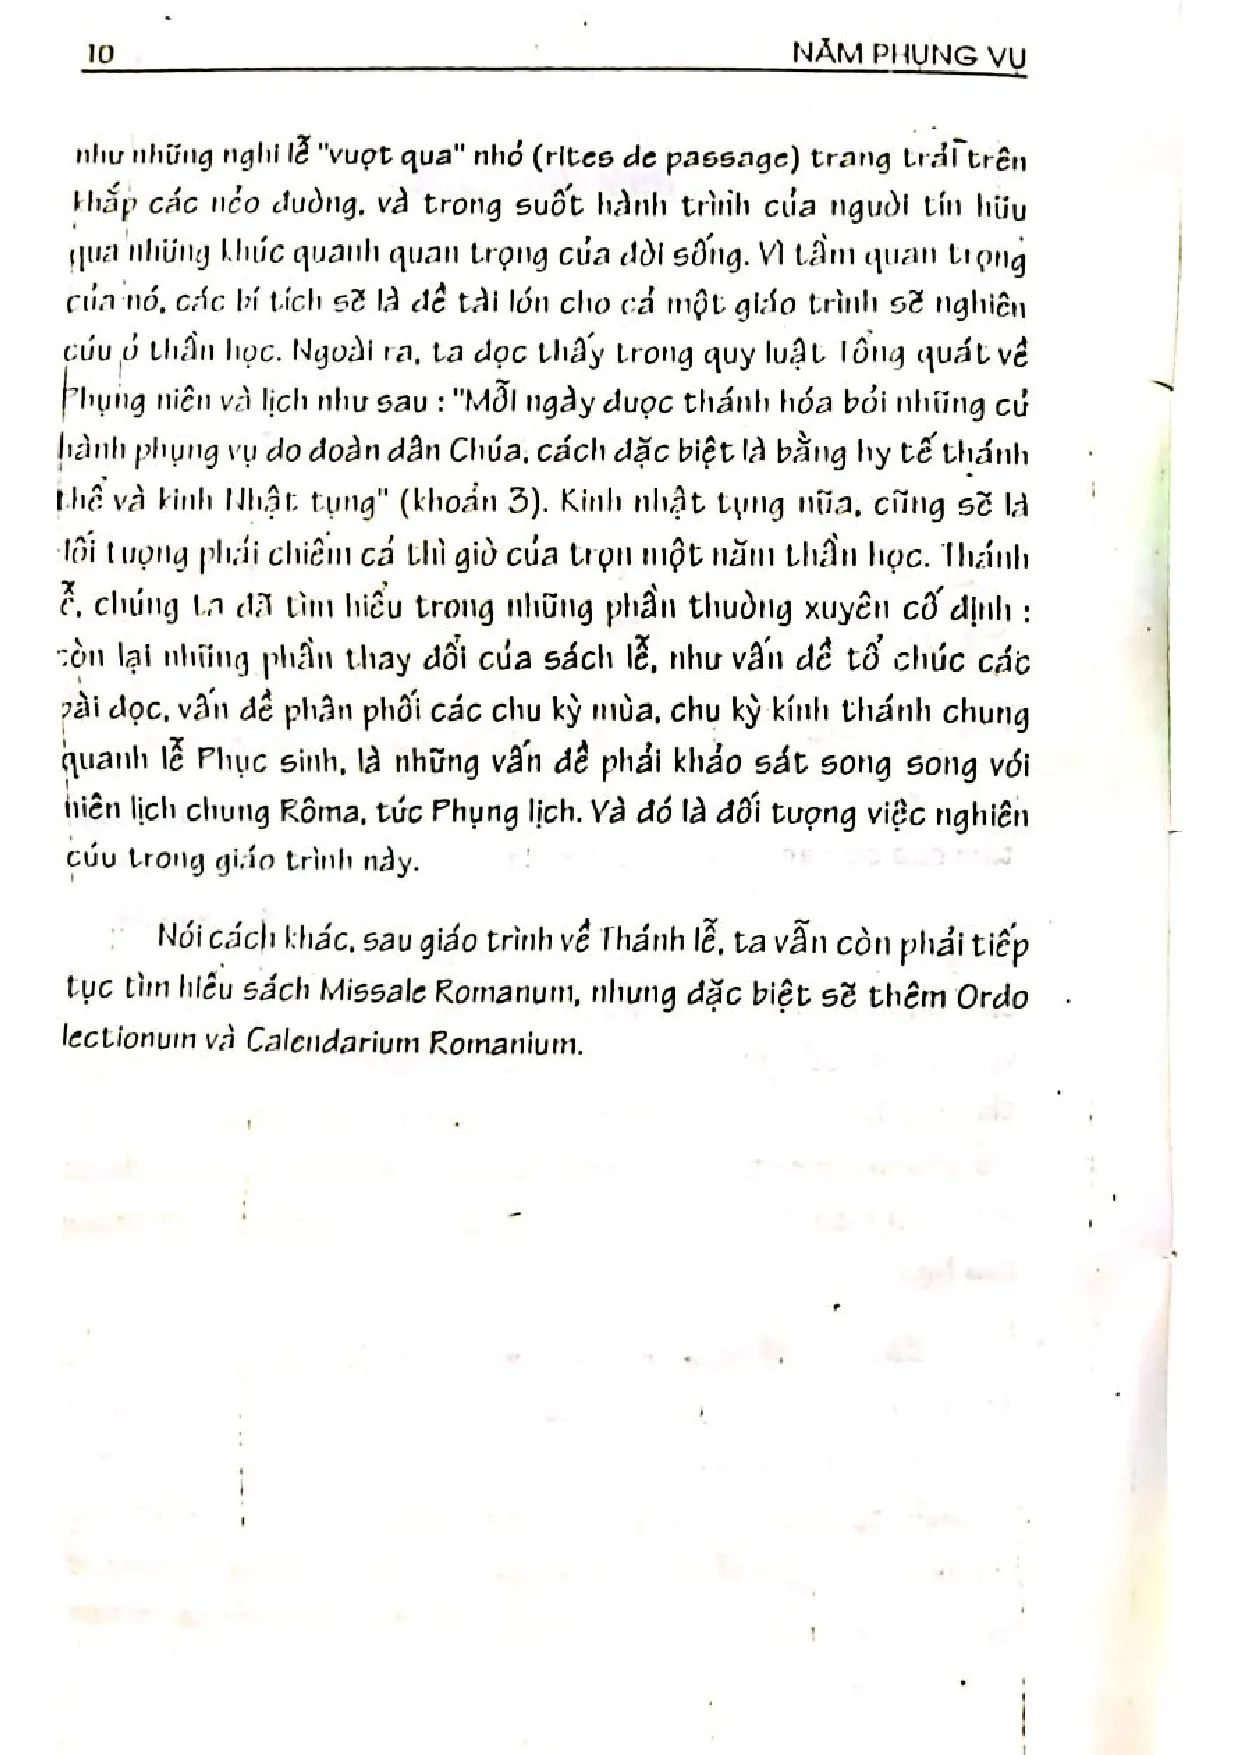 10 NĂM PHỤNG VỤ
như những nghi lễ "vượt qua" nhỏ (rites de passage) trang trải trên
khắp các nẻo đường, và trong suốt hành trình của người tín hữu
qua những khúc quanh quan trọng của đời sống. Vì tầm quan trọng
của nó, các bí tích sẽ là đề tài lớn cho cả một giáo trình sẽ nghiên
cứu ở thần học. Ngoài ra, ta đọc thấy trong quy luật Tổng quát về
Phụng niên và lịch như sau : "Mỗi ngày được thánh hóa bởi những cử
hành phụng vụ do đoàn dân Chúa, cách đặc biệt là bằng hy tế thánh
thể và kinh Nhật tụng" (khoản 3). Kinh nhật tụng nữa, cũng sẽ là
đối tượng phải chiếm cả thì giờ của trọn một năm thần học. Thánh
lễ, chúng ta đã tìm hiểu trong những phần thường xuyên cố định :
còn lại những phần thay đổi của sách lễ, như vấn đề tổ chức các
bài đọc, vấn đề phân phối các chu kỳ mùa, chu kỳ kính thánh chung
quanh lễ Phục sinh, là những vấn đề phải khảo sát song song với
niên lịch chung Rôma, tức Phụng lịch. Và đó là đối tượng việc nghiên
cứu trong giáo trình này.
Nói cách khác, sau giáo trình về Thánh lễ, ta vẫn còn phải tiếp
tục tìm hiểu sách Missale Romanum, nhưng đặc biệt sẽ thêm Ordo
lectionum và Calendarium Romanium.